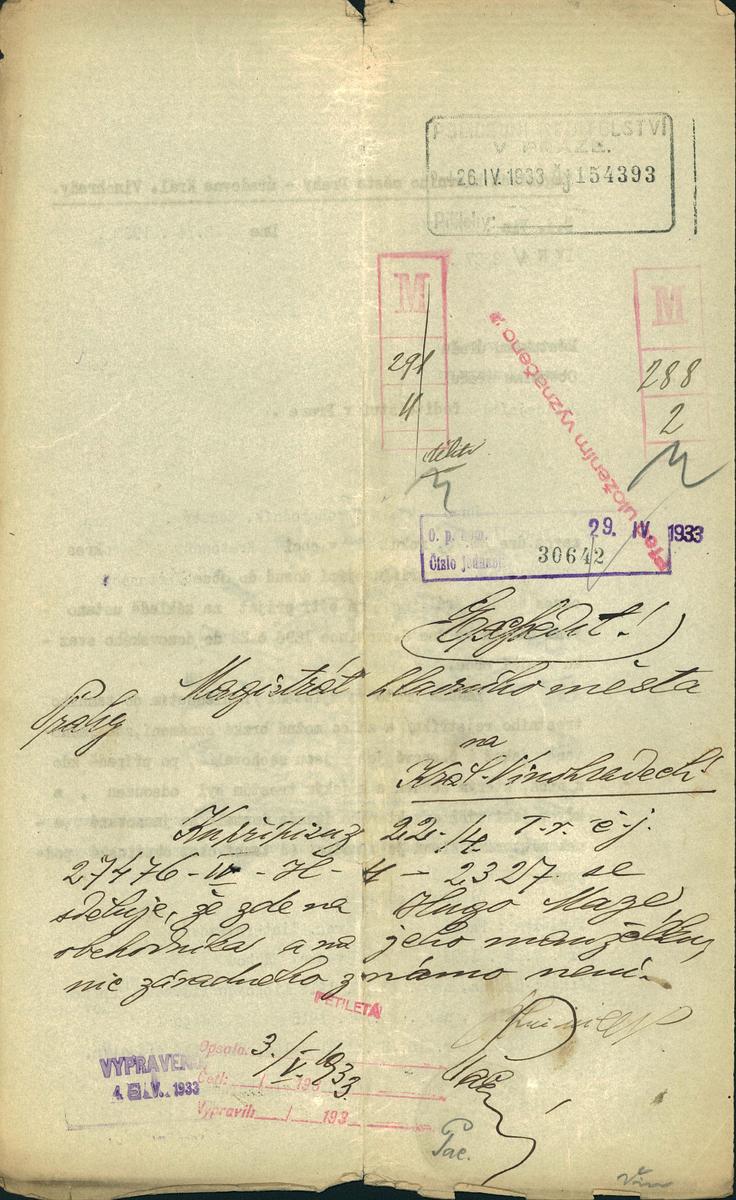 POLICEJNÍ ŘEDITELSTVÍ
V PRAZE.
26. IV. 1933 Čj 154393
Přílohy:
M
291
4
M
288
2
Plat. uložením vyznačeno
29. IV. 1933
Číslo jednací 30642
Expedit!
Magistrát hlavního města
Prahy
na
Král. Vinohradech!
K přípisu z 22./4. t. r. č. j.
27476-IV-H-4-2327 se
sděluje, že zde na Hugo Maze,
obchodníka a na jeho manželku,
nic závadného známo není.
PĚTILETÁ
VYPRAVENO
4. V. 1933
Opsalo: 3./V. 1933
Četl: / 193
Vypravil: / 193
Pac.